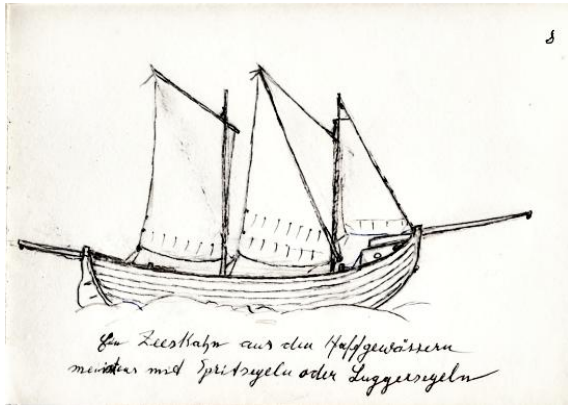 8
Ein Zeeskahn aus den Haffgewässern
meistens mit Spritsegeln oder Luggersegeln